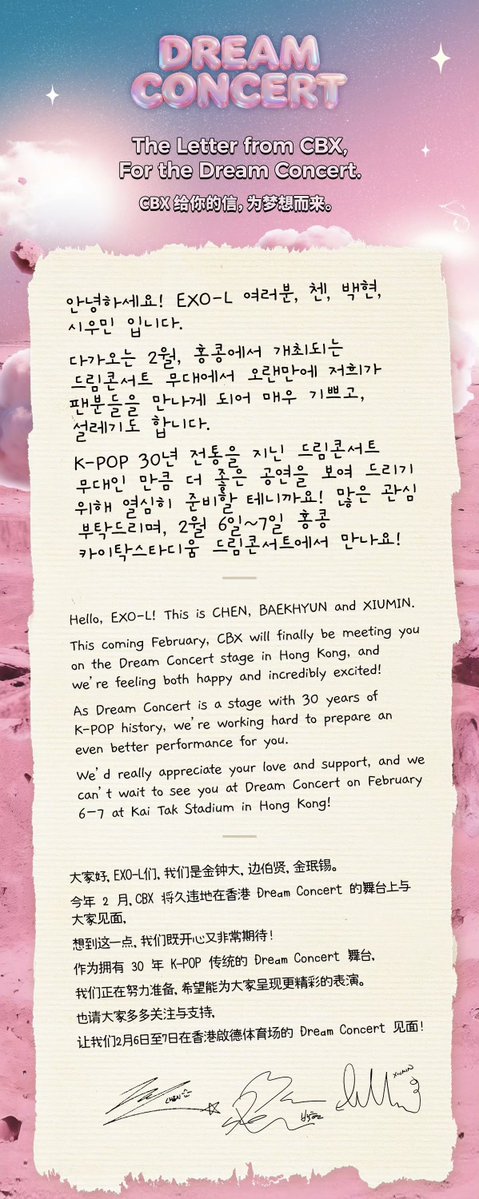 DREAM
CONCERT
The Letter from CBX,
For the Dream Concert.
CBX 给你的信, 为梦想而来。
안녕하세요! EXO-L 여러분, 첸, 백현,
시우민 입니다.
다가오는 2월, 홍콩에서 개최되는
드림콘서트 무대에서 오랜만에 저희가
팬분들을 만나게 되어 매우 기쁘고,
설레기도 합니다.
K-POP 30년 전통을 지닌 드림콘서트
무대인 만큼 더 좋은 공연을 보여 드리기
위해 열심히 준비할 테니까요! 많은 관심
부탁드리며, 2월 6일~7일 홍콩
카이탁스타디움 드림콘서트에서 만나요!
Hello, EXO-L! This is CHEN, BAEKHYUN and XIUMIN.
This coming February, CBX will finally be meeting you
on the Dream Concert stage in Hong Kong, and
we're feeling both happy and incredibly excited!
As Dream Concert is a stage with 30 years of
K-POP history, we're working hard to prepare an
even better performance for you.
We'd really appreciate your love and support, and we
can't wait to see you at Dream Concert on February
6-7 at Kai Tak Stadium in Hong Kong!
大家好, EXO-L们, 我们是金钟大, 边伯贤, 金珉锡。
今年 2 月, CBX 将久违地在香港 Dream Concert 的舞台上与
大家见面,
想到这一点, 我们既开心又非常期待!
作为拥有 30 年 K-POP 传统的 Dream Concert 舞台,
我们正在努力准备, 希望能为大家呈现更精彩的表演。
也请大家多多关注与支持,
让我们2月6日至7日在香港啟德体育场的 Dream Concert 见面!
CHEN
XIUMIN